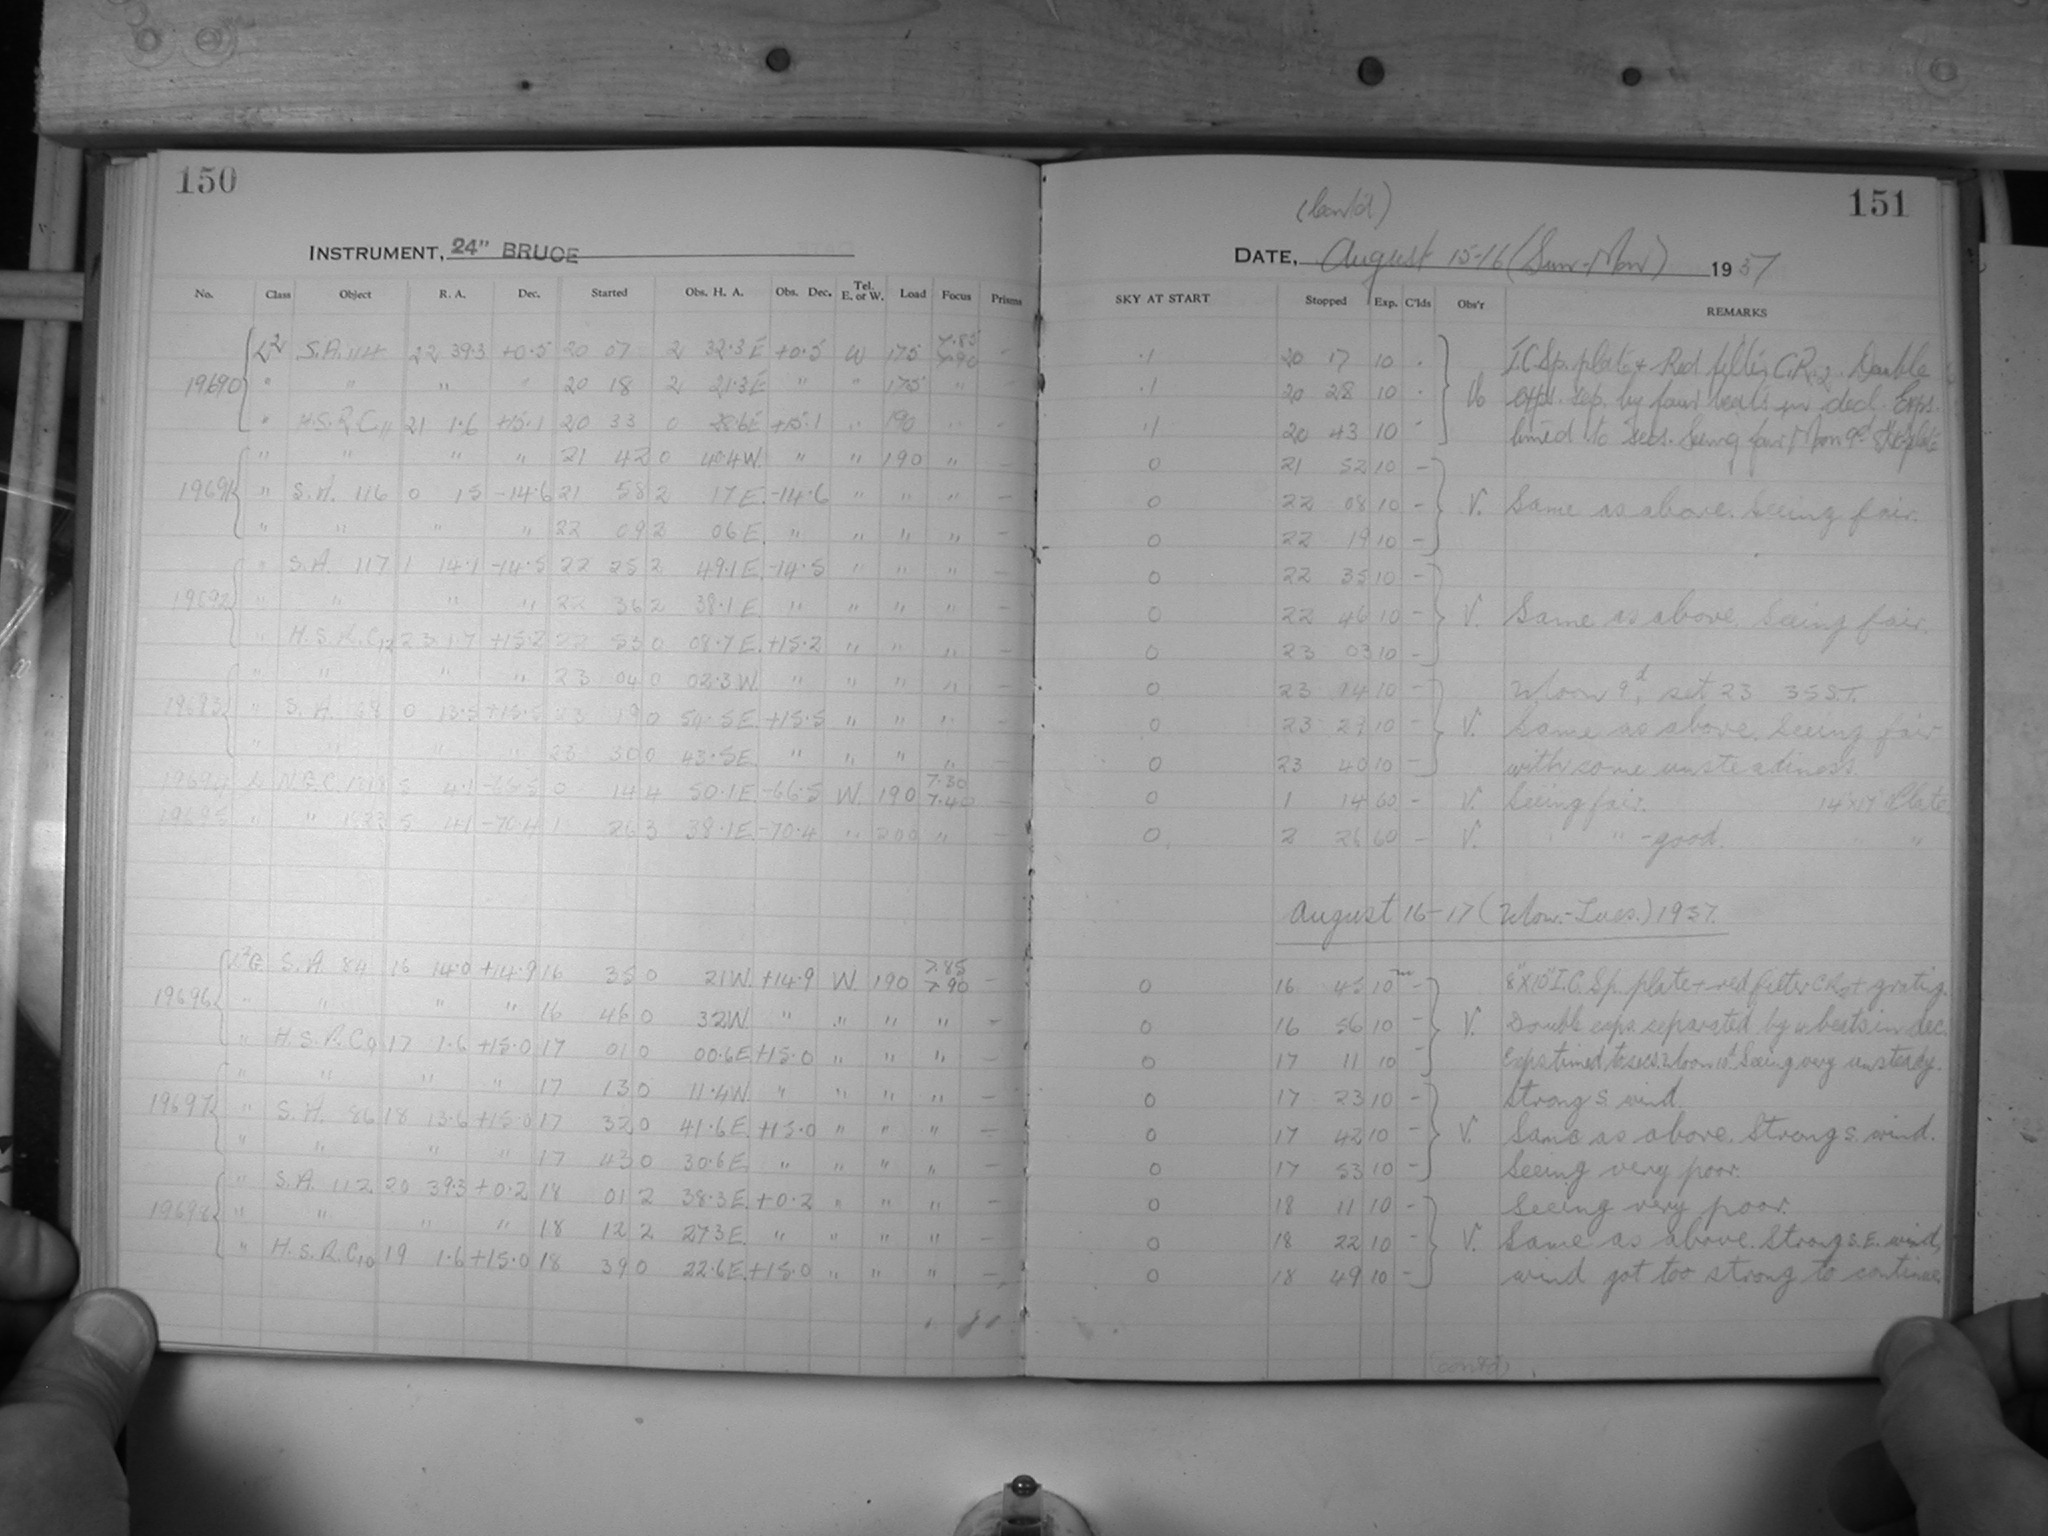 150
INSTRUMENT, 24" BRUCE
No. Class Object R. A. Dec. Started Obs. H. A. Obs. Dec. Tel. E. or W. Load Focus Prisms
S.A. 114 22 39.3 +0.5 20 07 2 32.3 E +0.5 W 175 7.85 7.90 -
19690 " " " " 20 18 2 21.3 E " " 175 " -
" H.S.R.C.11 21 1.6 +15.1 20 33 0 +15.1 " 190 " -
" " " " 21 42 0 40.4 W. " " 190 " -
19691 " S.A. 116 0 15 -14.6 21 58 2 17 E. -14.6 " " " -
" " " " 22 09 2 06 E. " " " " -
" S.A. 117 1 14.1 -14.5 22 25 2 49.1 E. -14.5 " " " -
19692 " " " " 22 36 2 38.1 E. " " " " -
" H.S.R.C.12 23 1.7 +15.2 22 53 0 08.7 E. +15.2 " " " -
" " " " 23 04 0 02.3 W. " " " " -
19693 " S.A. 68 0 13.5 +15.5 23 19 0 54.5 E. +15.5 " " " -
" " " " 23 30 0 43.5 E. " " " " -
19694 N.G.C. 5 4.1 -66.5 0 14 4 50.1 E. -66.5 W. 190 7.30 7.40 -
19695 " " 5 41 -70.4 1 26 3 38.1 E. -70.4 " 200 " -
S.A. 84 16 14.0 +14.9 16 35 0 21 W. +14.9 W. 190 7.85 7.90 -
19696 " " " " 16 46 0 32 W. " " " " -
" H.S.R.C.9 17 1.6 +15.0 17 01 0 00.6 E. +15.0 " " " -
" " " " 17 13 0 11.4 W. " " " " -
19697 " S.A. 86 18 13.6 +15.0 17 32 0 41.6 E. +15.0 " " " -
" " " " 17 43 0 30.6 E. " " " " -
" S.A. 112 20 39.3 +0.2 18 01 2 38.3 E. +0.2 " " " -
19698 " " " " 18 12 2 27.3 E. " " " " -
" H.S.R.C.10 19 1.6 +15.0 18 39 0 22.6 E. +15.0 " " " -
151
(Cont'd)
DATE, August 15-16 (Sun-Mon) 1937
SKY AT START Stopped Exp. C'lds Obs'r REMARKS
.1 20 17 10 . I.C.Sp. plate + Red filter C.R.2. Double
.1 20 28 10 . exps. sep. by four beats in dec. Exps.
.1 20 43 10 . timed to secs. Seeing fair. Moon 9d.
0 21 52 10 -
0 22 08 10 - V. Same as above. Seeing fair.
0 22 19 10 -
0 22 35 10 -
0 22 46 10 - V. Same as above. Seeing fair.
0 23 03 10 -
0 23 14 10 - Moon 9d, set 23 35 S.T.
0 23 29 10 - V. Same as above. Seeing fair
0 23 40 10 - with some unsteadiness.
0 1 14 60 - V. Seeing fair. 14"x17" Plate.
0 2 26 60 - V. " -good. "
August 16-17 (Mon.-Tues.) 1937.
0 16 45 10m - 8"x10" I.C.Sp. plate + red filter CR2 + grating.
0 16 56 10 - V. Double exps separated by 4 beats in dec.
0 17 11 10 - Exps timed to secs. Moon 10d. Seeing very unsteady.
0 17 23 10 - Strong S. wind.
0 17 42 10 - V. Same as above. Strong S. wind.
0 17 53 10 - Seeing very poor.
0 18 11 10 - Seeing very poor.
0 18 22 10 - V. Same as above. Strong S.E. wind,
0 18 49 10 - wind got too strong to continue.
(cont'd)